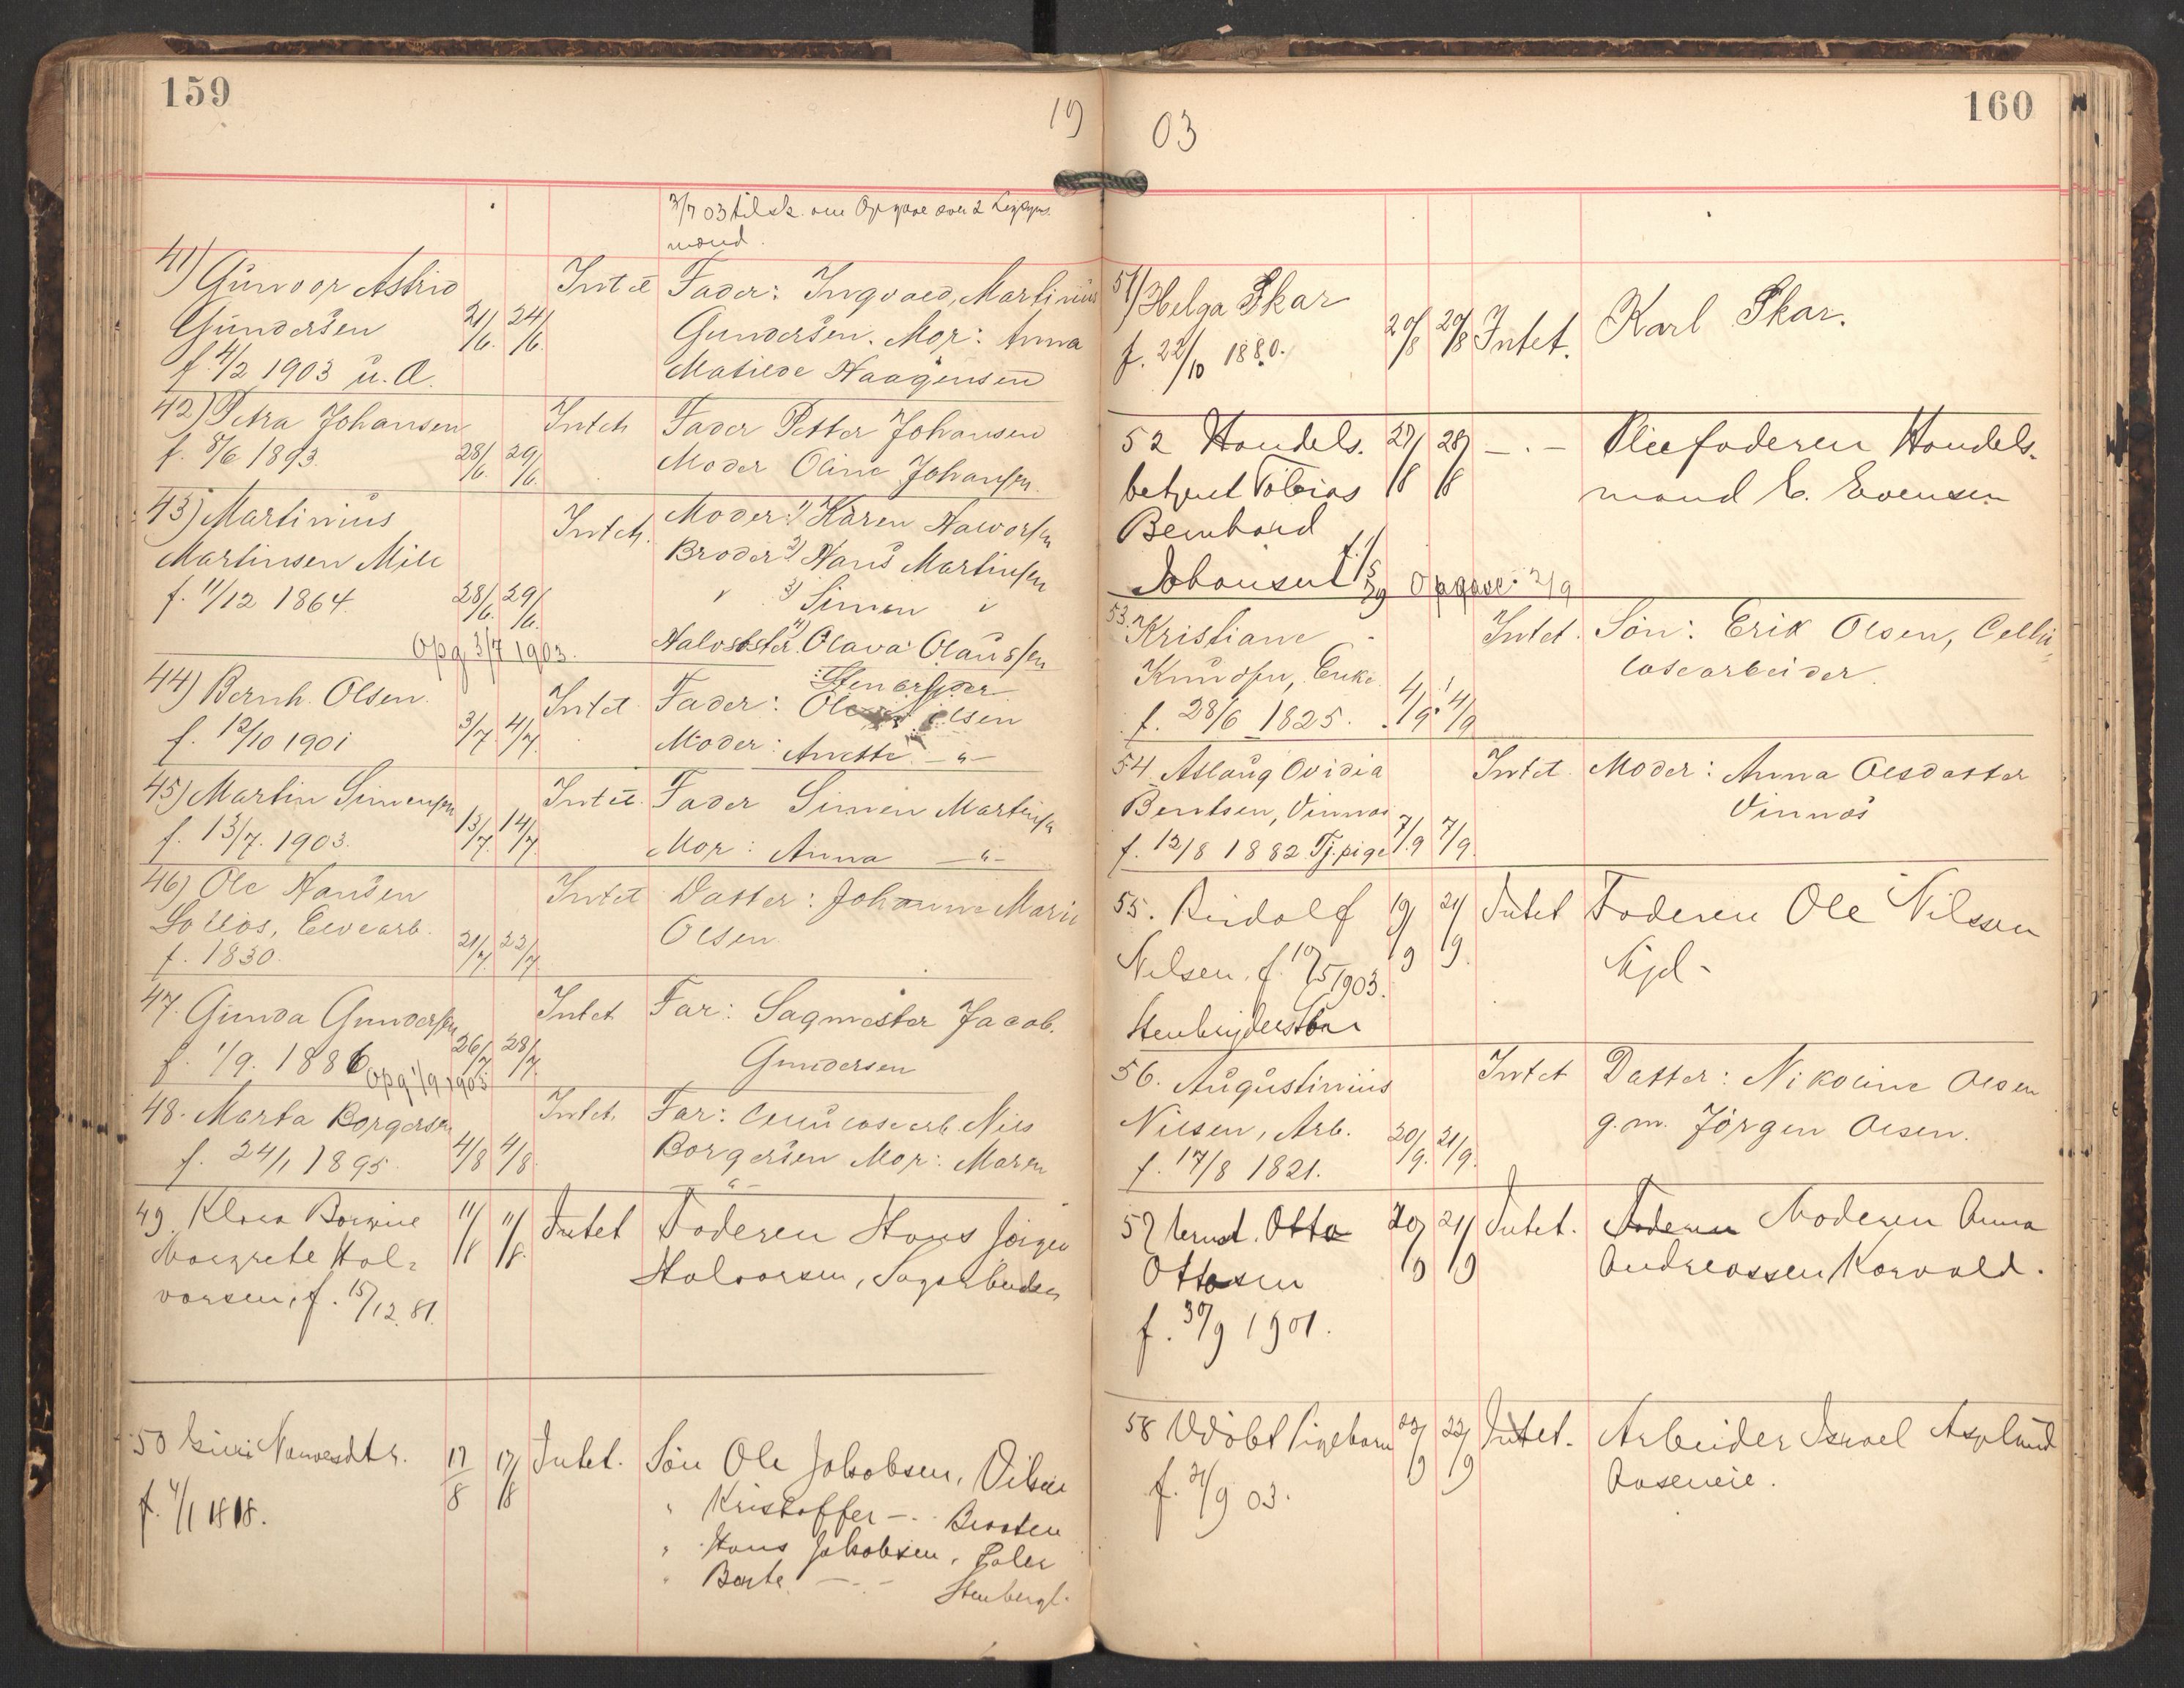 159
19
3/7 03 tilsk. om Opgave over 2
mænd.
41) Gunvor Astrid
Gundersen
f. 4/2 1903 u. Æ.
21/6. 24/6.
Intet
Fader: Ingvald Martinius
Gundersen. Mor: Anna
Matilde Haagensen
42) Petra Johansen
f. 8/6 1893.
28/6. 29/6.
Intet
Fader Petter Johansen
Moder Oline Johansen.
43) Martinius
Martinsen Mile
f. 11/12 1864.
28/6. 29/6.
Opg 3/7 1903.
Intet.
Moder: 1) Karen Halvorsen
Broder 2) Hans Martinsen
" 3) Simen "
Halvsöster 4) Olava Olaussen
44) Bernh. Olsen.
f. 12/10 1901
3/7. 4/7.
Intet
Stenarbider
Fader: Ole Olsen
Moder: Anette —"—
45) Martin Simensen
f. 13/7. 1903.
13/7. 14/7.
Intet.
Fader Simen Martinsen
Mor: Anna —"—
46) Ole Hansen
Sollös, Elvearb.
f. 1830.
21/7. 22/7.
Intet
Datter: Johanne Marie
Olsen
47. Gunda Gundersen
f. 1/9. 1886
Opg 1/9 1903
26/7. 28/7.
Intet
Far: Sagmester Jacob.
Gundersen
48. Marta Borgersen
f. 24/1 1895.
4/8 4/8.
Intet.
Far: Cellulosearb. Nils
Borgersen Mor: Maren
—"—
49. Klara Borgine
Margrete Hal-
vorsen, f. 15/12. 81.
11/8 11/8.
Intet
Faderen Hans Jörgen
Halvorsen, Sagarbeider
50 Siri Narvesdtr.
f. 4/1 1818.
17/8 17/8
Intet.
Sön Ole Jakobsen,
" Kristoffer —.- Braaten
" Hans Jakobsen,
" Berte —.-
Stenbergl.
03
160
51) Helga Skar
f. 22/10 1880.
20/8 20/8
Intet.
Karl Skar.
52 Handels.
betjent Tobias
Bernhard
Johansen f. 1/5 79
27/8 28/8
—.—
Opgave 2/9
Pleiefaderen Handels-
mand E. Evensen
53. Kristiane
Knudsen, Enke
f. 28/6 1825.
4/9. 4/9
Intet.
Sön: Erik Olsen, Cellu-
losearbeider.
54. Aslaug Ovidia
Bentsen, Vinnäs
f. 12/8 1882 Tj.pige
7/9 7/9.
Intet.
Moder: Anna Olsdatter
Vinnäs
55. Rudolf
Nilsen, f. 10/5 1903.
Stenbryderssön
19/9 21/9.
Intet
Faderen Ole Nilsen
56. Augustinius
Nilsen, Arb.
f. 17/8 1821.
20/9. 21/9.
Intet
Datter: Nikoline Olsen
g.m. Jörgen Olsen.
57 Ernst. Otto
Ottosen
f. 30/9 1901.
20/9 21/9
Intet.
Faderen Moderen Anna
Andreassen Korvald.
58 Udöbt Pigebarn
f. 21/9 03.
22/9 22/9
Intet.
Arbeider Israel Asplund
Aaseneie.